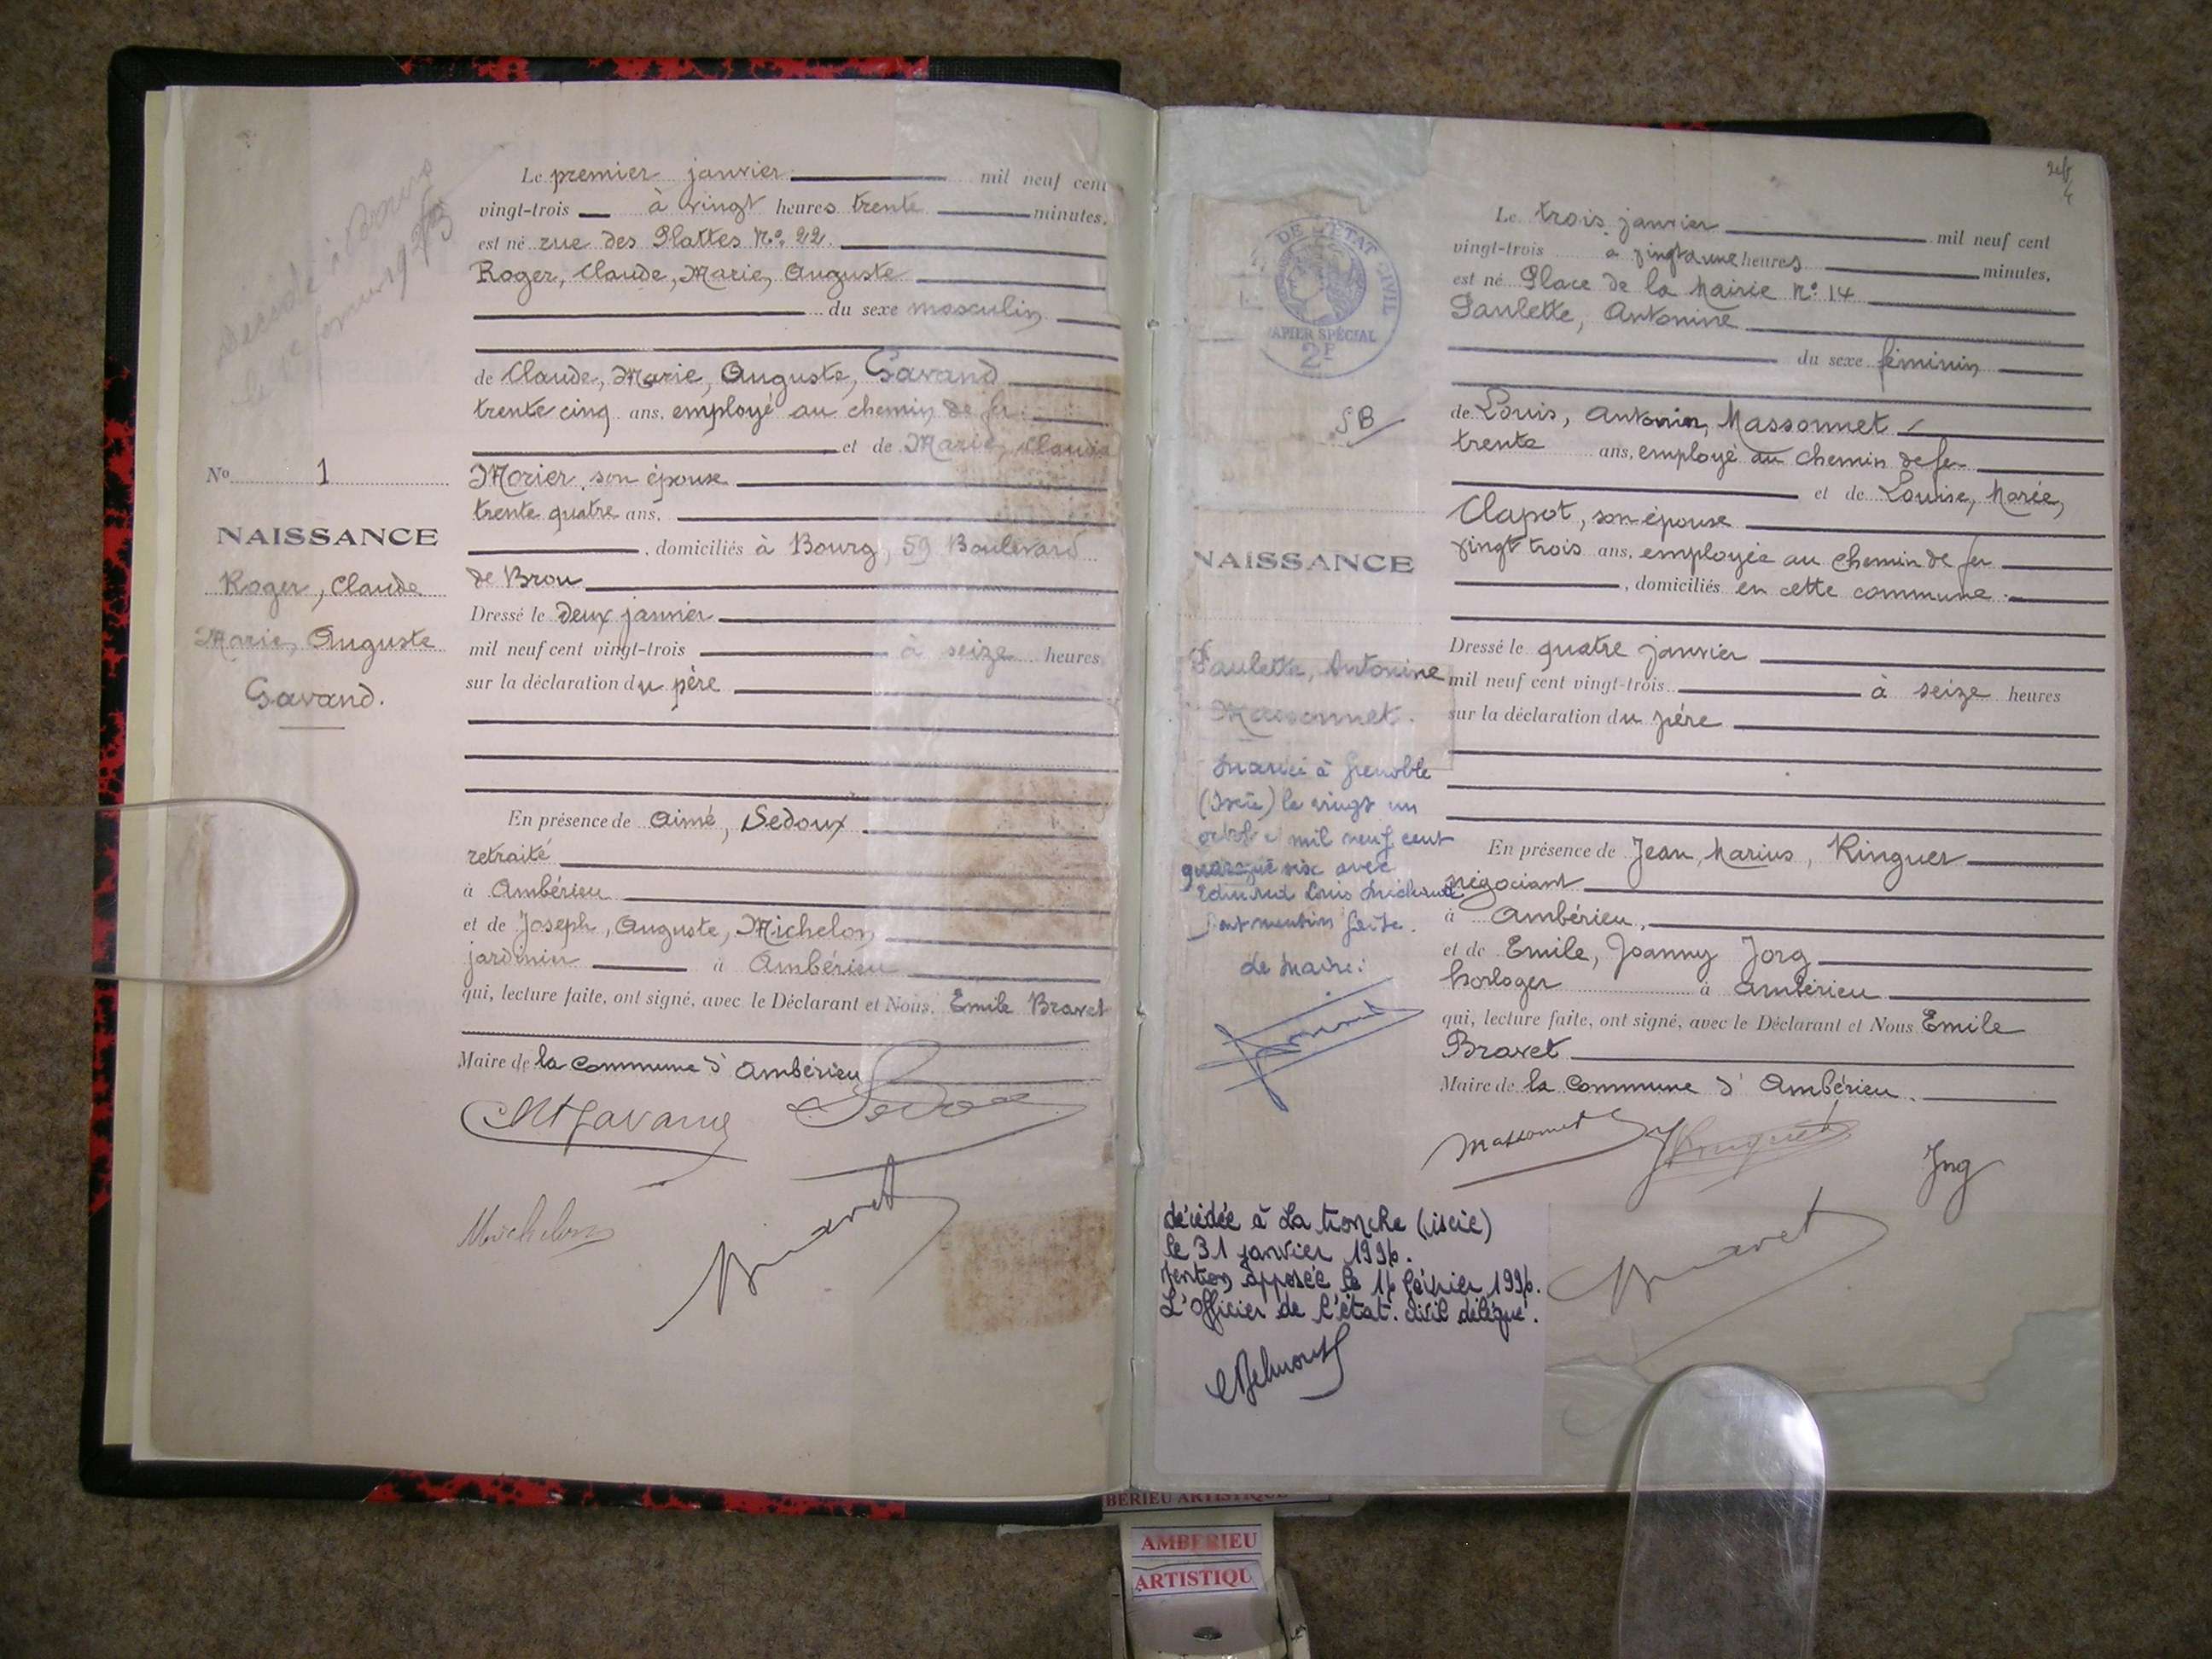 Décédé à
le
Le premier janvier mil neuf cent
vingt-trois à vingt heures trente minutes.
est né rue des Plattes No. 22.
Roger, Claude, Marie, Auguste
du sexe masculin
de Claude, Marie, Auguste, Gavand
trente cinq ans, employé au chemin de fer
et de Marie, Claudia
Morier son épouse
trente quatre ans,
, domiciliés à Bourg, 59 Boulevard
de Brou
Dressé le deux janvier
mil neuf cent vingt-trois à seize heures
sur la déclaration du père
En présence de Aimé, Sedoux
retraité
à Ambérieu
et de Joseph, Auguste, Michelon
jardinier à Ambérieu
qui, lecture faite, ont signé, avec le Déclarant et Nous, Emile Bravet
Maire de la commune d'Ambérieu
Michelon
Bravet
No 1
NAISSANCE
Roger, Claude
Marie, Auguste
Gavand.
DE L'ÉTAT CIVIL
PAPIER SPÉCIAL
2F
SB
Le trois janvier mil neuf cent
vingt-trois à vingt une heures minutes,
est né Place de la Mairie No. 14
Paulette, Antonine
du sexe féminin
de Louis, Antonin, Massonnet
trente ans, employé au chemin de fer
et de Louise, Marie,
Clapot, son épouse
vingt trois ans, employée au chemin de fer
, domiciliés en cette commune.
Dressé le quatre janvier
mil neuf cent vingt-trois à seize heures
sur la déclaration du père
En présence de Jean, Marius, Ringuet
négociant
à Ambérieu,
et de Emile, Joanny Jorg
horloger à Ambérieu
qui, lecture faite, ont signé, avec le Déclarant et Nous Emile
Bravet
Maire de la commune d'Ambérieu.
Massonnet
Jorg
Bravet
NAISSANCE
Paulette, Antonine
Massonnet.
Mariée à Grenoble
(Isère) le vingt un
octobre mil neuf cent
quarante six avec
Edmond Louis
Dont mention faite.
Le Maire:
décédée à La tronche (isère)
le 31 janvier 1996.
Mention apposée le 16 février 1996.
L'Officier de l'état. civil délégué.
BERIEU ARTISTIQUE
AMBERIEU
ARTISTIQU